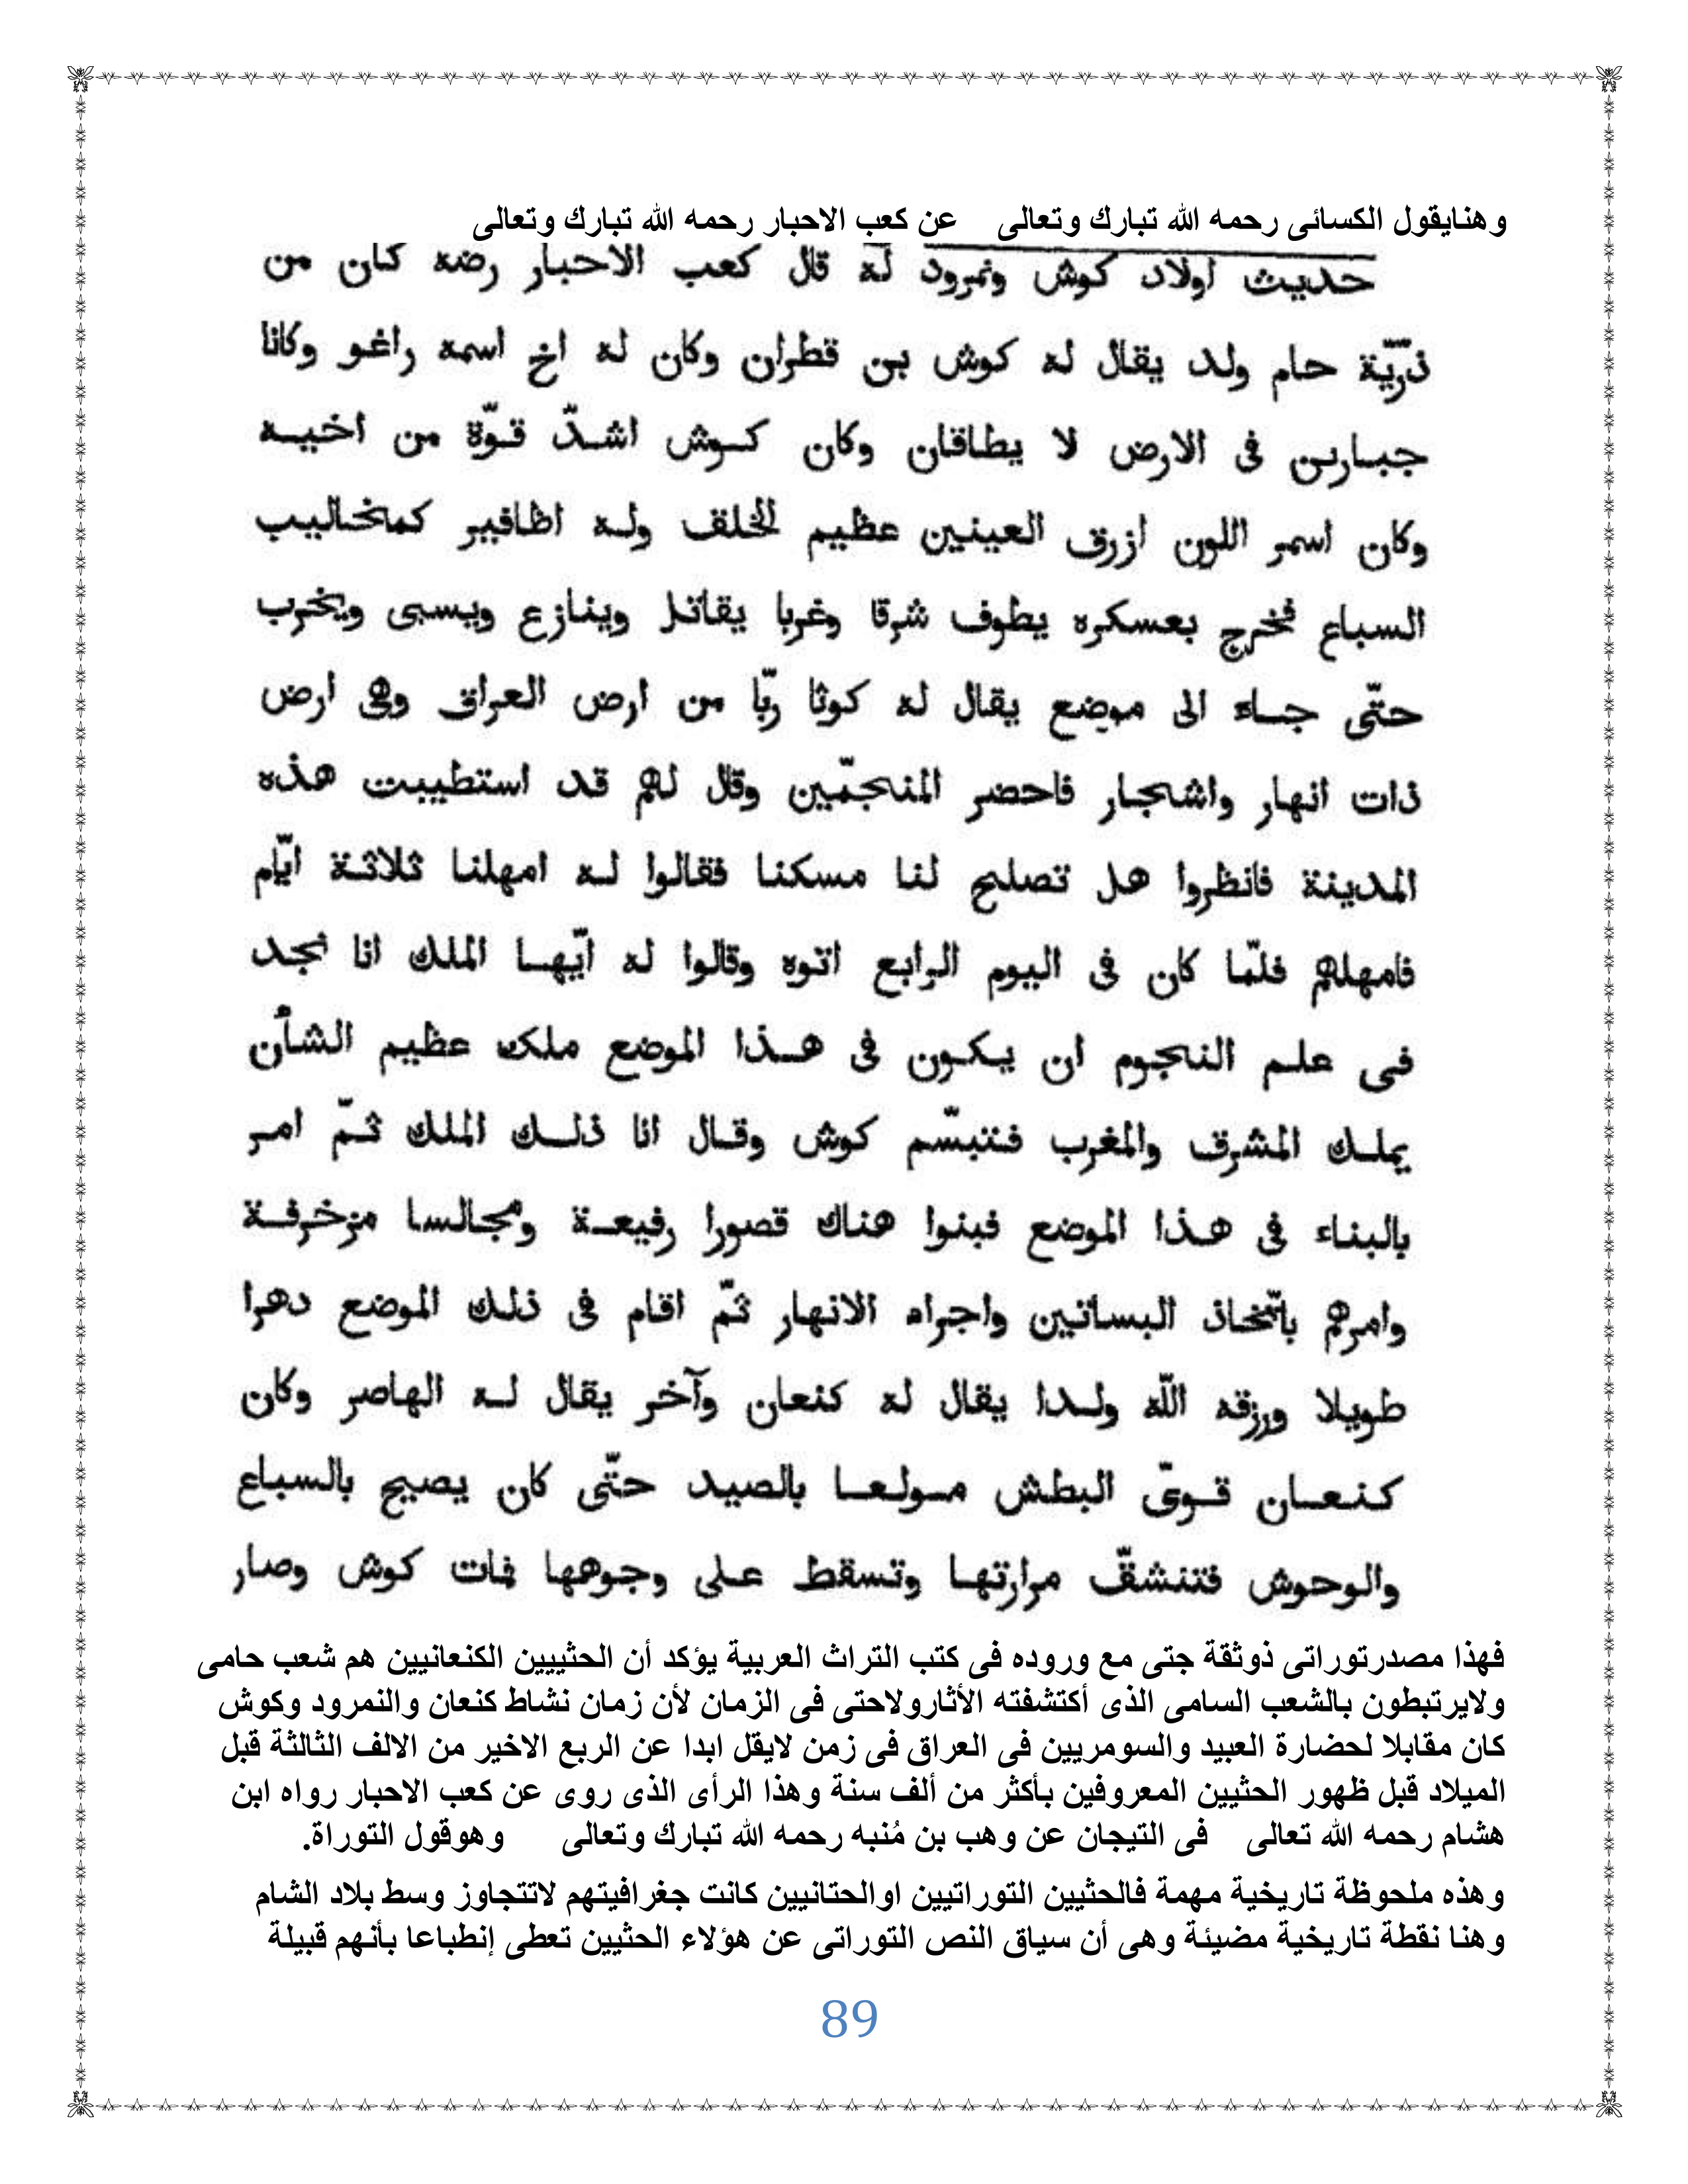 وهنايقول الكسائى رحمه الله تبارك وتعالى عن كعب الاحبار رحمه الله تبارك وتعالى
حديث اولاد كوش ونمرود لة قال كعب الاحبار رضه كان من
ذرّيّة حام ولد يقال له كوش بن قطران وكان له اخ اسمه راغو وكانا
جبارين فى الارض لا يطاقان وكان كوش اشدّ قوّة من اخيه
وكان اسمر اللون ازرق العينين عظيم الخلق وله اظافير كمخاليب
السباع فخرج بعسكره يطوف شرقا وغربا يقاتل وينازع ويسبى ويخرب
حتّى جاء الى موضع يقال له كوثا ربّا من ارض العراق وهى ارض
ذات انهار واشجار فاحضر المنجمّين وقال لهم قد استطيبت هذه
المدينة فانظروا هل تصلح لنا مسكنا فقالوا له امهلنا ثلاثة ايّام
فامهلهم فلمّا كان فى اليوم الرابع اتوه وقالوا له ايّها الملك انا نجد
فى علم النجوم ان يكون فى هذا الموضع ملك عظيم الشأن
يملك المشرق والمغرب فتبسّم كوش وقال انا ذلك الملك ثمّ امر
بالبناء فى هذا الموضع فبنوا هناك قصورا رفيعة ومجالسا مزخرفة
وامرهم باتّخاذ البساتين واجراء الانهار ثمّ اقام فى ذلك الموضع دهرا
طويلا ورزقه اللّه ولدا يقال له كنعان وآخر يقال له الهاصر وكان
كنعان قوىّ البطش مولعا بالصيد حتّى كان يصيح بالسباع
والوحوش فتنشقّ مرارتها وتسقط على وجوهها فمات كوش وصار
فهذا مصدرتوراتى ذوثقة جتى مع وروده فى كتب التراث العربية يؤكد أن الحثييين الكنعانيين هم شعب حامى
ولايرتبطون بالشعب السامى الذى أكتشفته الأثارولاحتى فى الزمان لأن زمان نشاط كنعان والنمرود وكوش
كان مقابلا لحضارة العبيد والسومريين فى العراق فى زمن لايقل ابدا عن الربع الاخير من الالف الثالثة قبل
الميلاد قبل ظهور الحثيين المعروفين بأكثر من ألف سنة وهذا الرأى الذى روى عن كعب الاحبار رواه ابن
هشام رحمه الله تعالى فى التيجان عن وهب بن مُنبه رحمه الله تبارك وتعالى وهوقول التوراة.
وهذه ملحوظة تاريخية مهمة فالحثيين التوراتيين اوالحتانيين كانت جغرافيتهم لاتتجاوز وسط بلاد الشام
وهنا نقطة تاريخية مضيئة وهى أن سياق النص التوراتى عن هؤلاء الحثيين تعطى إنطباعا بأنهم قبيلة
89